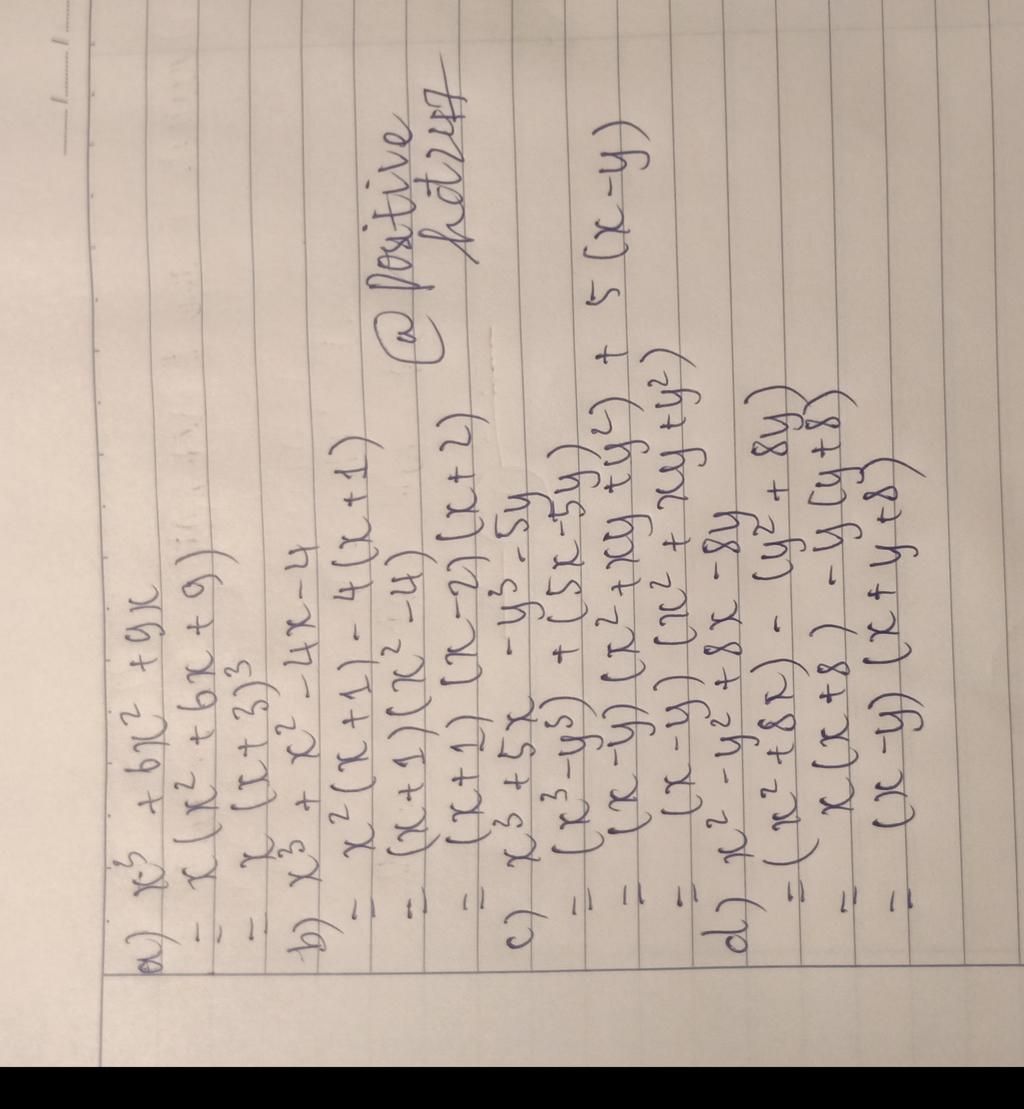 a) x³ + 6x² + 9x
= x(x² + 6x + 9)
= x(x+3)³
b) x³ + x² - 4x - 4
= x²(x+1) - 4(x+1)
= (x+1)(x² - 4)
= (x+1)(x-2)(x+2)
@positive
c) x³ + 5x - y³ - 5y
= (x³ - y³) + (5x - 5y)
= (x-y)(x² + xy + y²) + 5(x-y)
= (x-y)(x² + xy + y²)
d) x² - y² + 8x - 8y
= (x² + 8x) - (y² + 8y)
= x(x+8) - y(y+8)
= (x-y)(x+y+8)